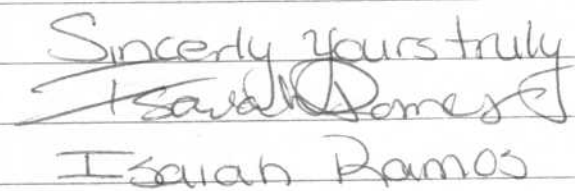 Sincerly yours truly
Isaiah Ramos
Isaiah Ramos